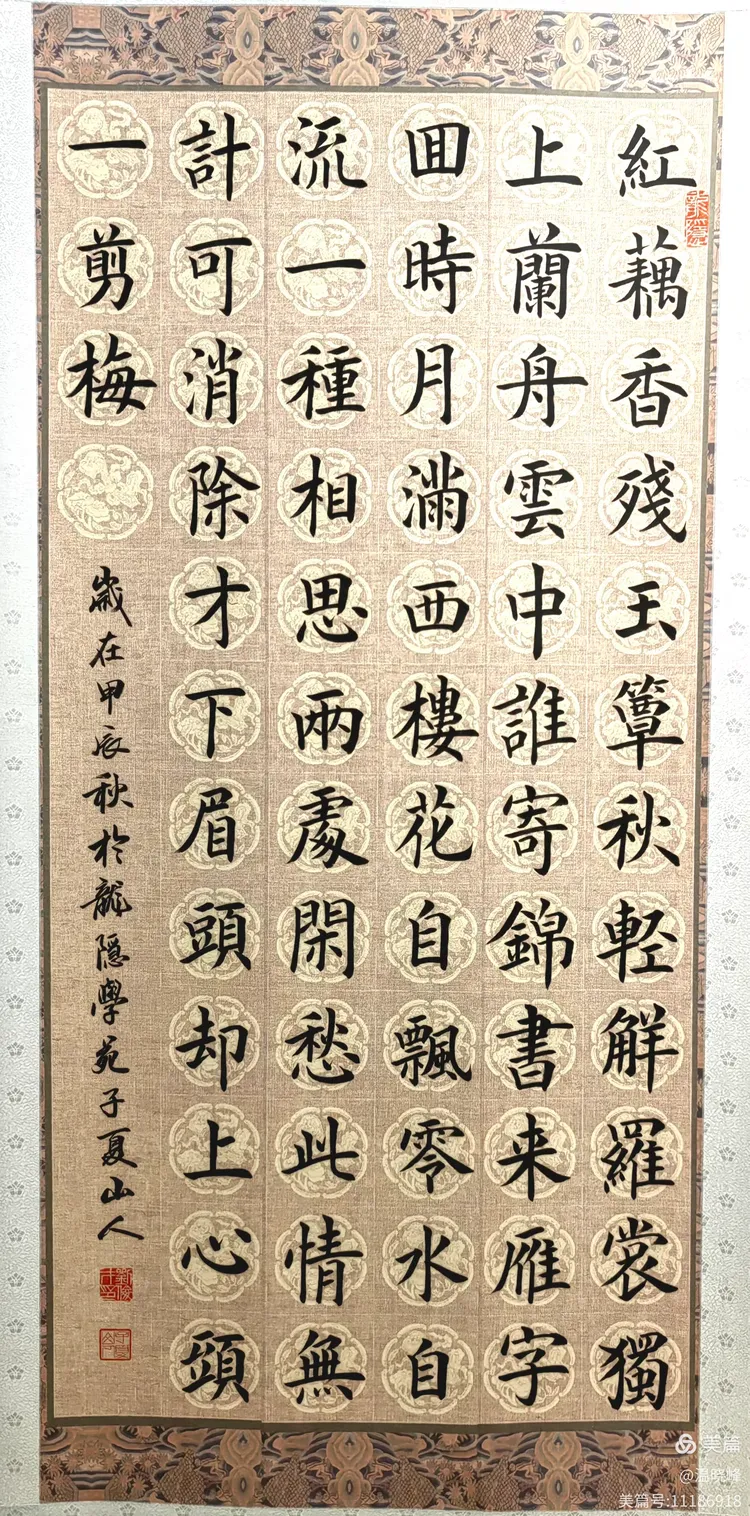 紅藕香殘玉簟秋軽解羅裳獨
上蘭舟雲中誰寄錦書来雁字
囬時月滿西樓花自飄零水自
流一種相思兩處閑愁此情無
計可消除才下眉頭却上心頭
一剪梅
歲在甲辰秋於龍隱學苑子夏山人
美篇
@温晓峰
美篇号:11186918